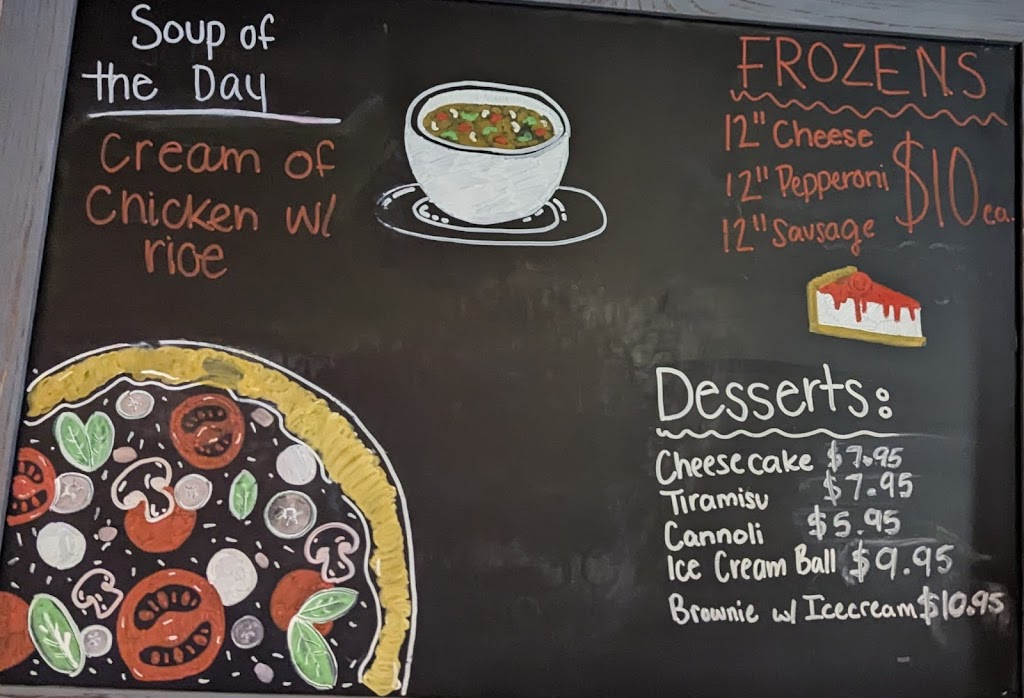 Soup of
the Day
Cream of
Chicken w/
rice
FROZENS
12" Cheese
12" Pepperoni $10 ea.
12" Sausage
Desserts:
Cheesecake $7.95
Tiramisu $7.95
Cannoli $5.95
Ice Cream Ball $9.95
Brownie w/ Icecream $10.95